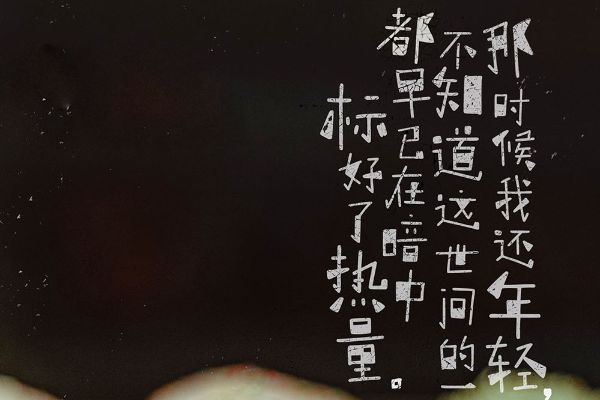 那时候我还年轻,
不知道这世间的一
都早已在暗中
标好了热量。